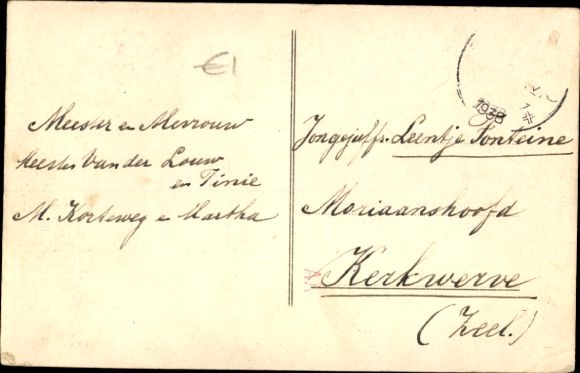 €1
Meester en Mevrouw
Meester Van der Louw
en Tinie
M. Korteweg en Martha
1938
Jongejuffr. Leentje Fonteine
Moriaanshoofd
Kerkwerve
(Zeel.)